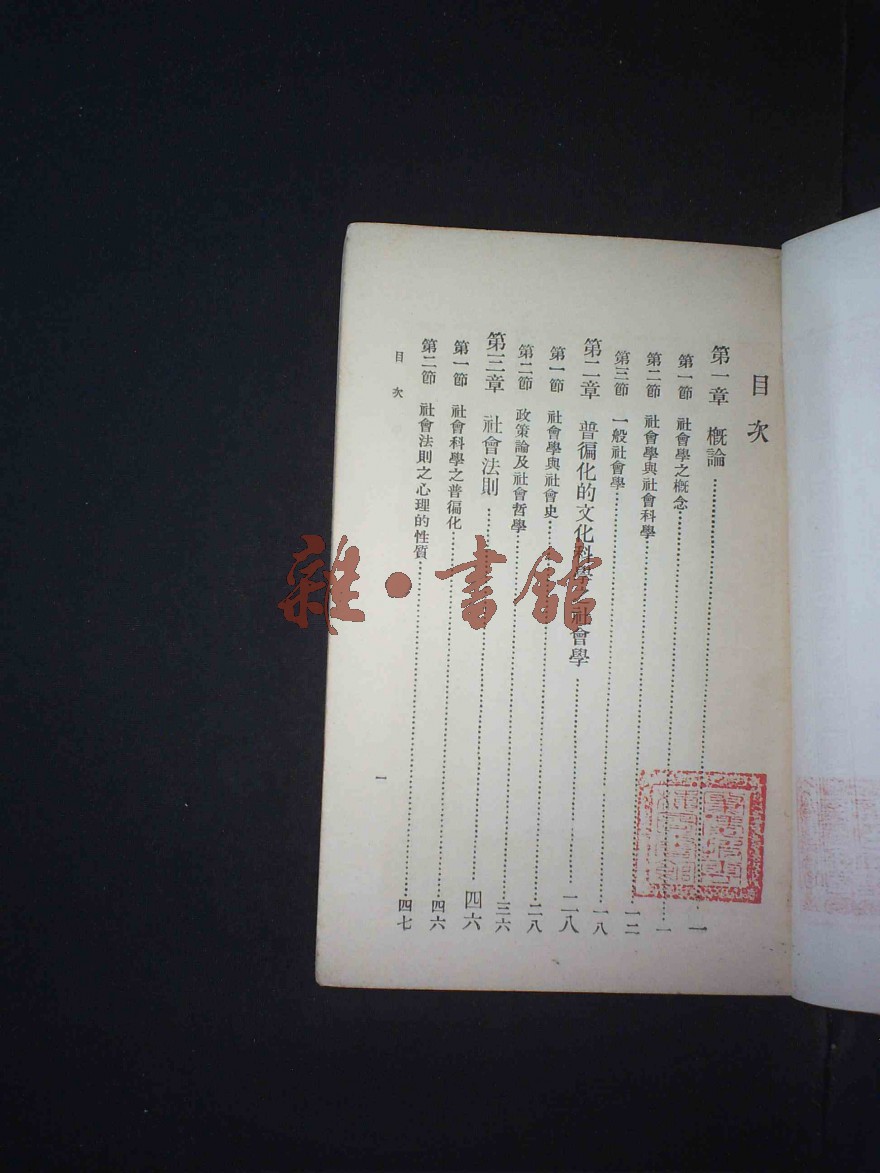 目次
第一章 概論……一
第一節 社會學之概念……一
第二節 社會學與社會科學……一二
第三節 一般社會學……一八
第二章 普徧化的文化科學 社會學……二八
第一節 社會學與社會史……二八
第二節 政策論及社會哲學……三六
第三章 社會法則……四六
第一節 社會科學之普徧化……四六
第二節 社會法則之心理的性質……四七
目次
一
雜·書館